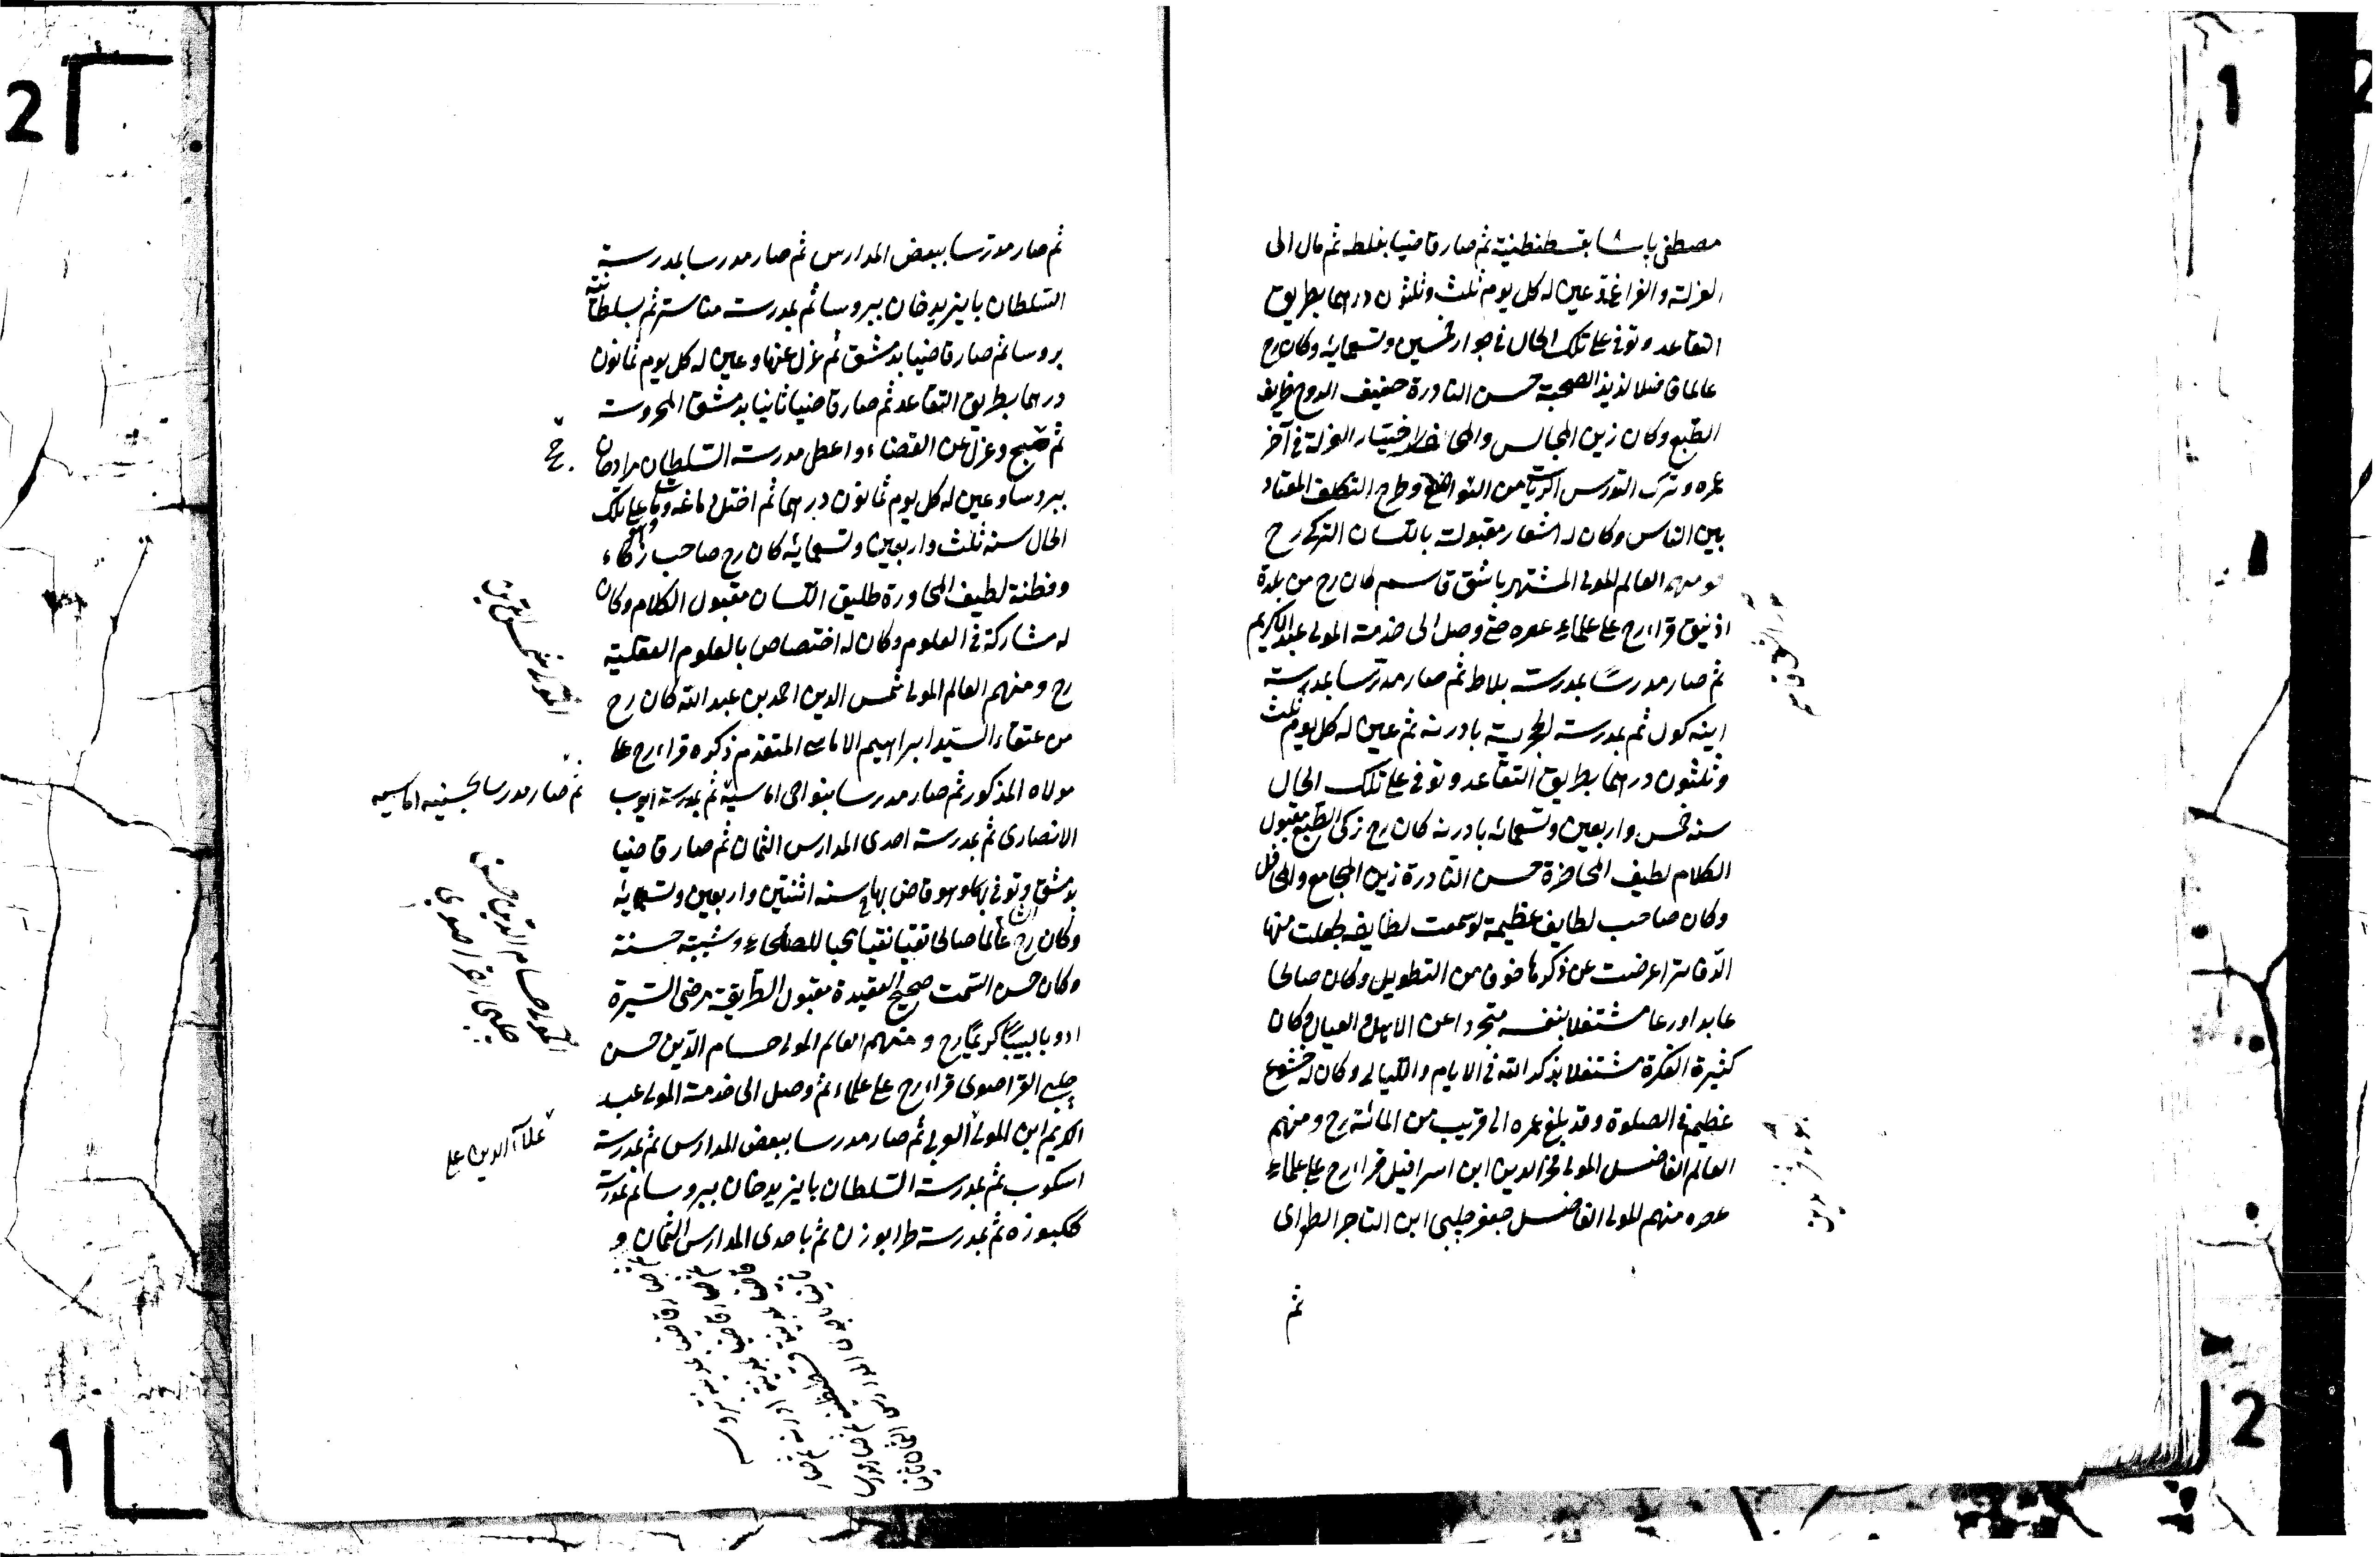 مصطفى باشا بقسطنطنية ثم صار قاضيا بغلطه ثم مال الى
العزلة والفراغة وعين له كل يوم ثلث وثلثون درهما بطريق
التقاعد وتوفى على تلك الحال فى جوار خمسين وتسعمائه وكان رح
عالما فاضلا لذيذ الصحبة حسن النادرة خفيف الروح ظريف
الطبع وكان زين المجالس والمحافل اختيار العزلة فى آخر
عمره وترك التدرس اكثر من التواضع وطرح التكلف المعتاد
بين الناس وكان له اشعار مقبولت باللسان التركى رح
ومنهم العالم المولى المشتهر باشق قاسم كان رح من بلدة
ازنيق قراء رح على علماء عصره حتى وصل الى خدمة المولى عبد الكريم
ثم صار مدرسا بمدرست بلاط ثم صار مدرسا بمدرسة
اينه كول ثم بمدرسة الحجرية بادرنه ثم عين له كل يوم ثلث
وثلثون درهما بطريق التقاعد وتوفى على تلك الحال
سنه خمس واربعين وتسعمائه بادرنه كان رح زكى الطبع مقبول
الكلام لطيف المحاضرة حسن النادرة زين المجامع والمحافل
وكان صاحب لطايف عظيمة لو سمعت لطايفه لجعلت منها
الدفاتر اعرضت عن ذكرها خوفا من التطويل وكان صالحا
عابدا ورعا مشتغلا بنفسه متجردا عن الاهل والعيال وكان
كثيرة الفكرة مشتغلا بذكر الله فى الايام والليالى وكان له خشوع
عظيم فى الصلوة وقد بلغ عمره الى قريب من المائة رح ومنهم
العالم الفاضل المولى فخر الدين ابن اسرافيل قراء رح على علماء
عصره منهم المولى الفاضل جعفر چلبى ابن التاجر الطواى
ثم
ثم صار مدرسا ببعض المدارس ثم صار مدرسا بمدرسة
السلطان بايزيد خان ببروسا ثم بمدرست مناستر ثم بسلطانية
بروسا ثم صار قاضيا بدمشق ثم عزل عنها وعين له كل يوم ثمانون
درهما بطريق التقاعد ثم صار قاضيا ثانيا بدمشق المحروسة
ثم وعزل عن القضاء واعطى مدرست السلطان مرادخان
ببروسا وعين له كل يوم ثمانون درهما ثم اختل دماغه ومات على تلك
الحال سنه ثلث واربعين وتسعمائه كان رح صاحب زكاء
وفطنة لطيف المحاورة طليق اللسان مقبول الكلام وكان
له مشاركة فى العلوم وكان له اختصاص بالعلوم العقلية
رح ومنهم العالم المولى شمس الدين احمد بن عبد الله كان رح
من عتقاء السيد ابراهيم الاماسى المتقدم ذكره قراء رح على
مولاه المذكور ثم صار مدرسا بنواحى اماسية ثم بمدرسة ايوب
ثم صار مدرسا بحسينيه اماسيه
الانصارى ثم بمدرسة احدى المدارس الثمان ثم صار قاضيا
بدمشق وتوفى بها وهو قاض بها سنه اثنتين واربعين وتسعمائه
وكان رح عالما صالحا تقيا نقيا محبا للصلحاء وشيبته حسنة
وكان حسن السمت صحيح العقيدة مقبول الطريقة مرضى السيرة
ادوبا لبيبا كريما رح ومنهم العالم المولى حسام الدين حسن
المولى حسام الدين حسن
چلبى القراصوى
چلبى القراصوى قراء رح على علماء ثم وصل الى خدمة المولى عبد
الكريم ابن المولى العربى ثم صار مدرسا ببعض المدارس ثم بمدرسة
علاء الدين على
اسكوب ثم بمدرسة السلطان بايزيد خان ببروسا ثم بمدرسة
ككبوزه ثم بمدرسة طرابوزن ثم باحدى المدارس الثمان و
ثم صار قاضيا بمدينة بروسه
ثم صار قاضيا بمدينة ادرنه ثم صار
قاضيا بمدينة قسطنطنيه ثم صار مدرسا
ثانيا باحدى المدارس الثمان